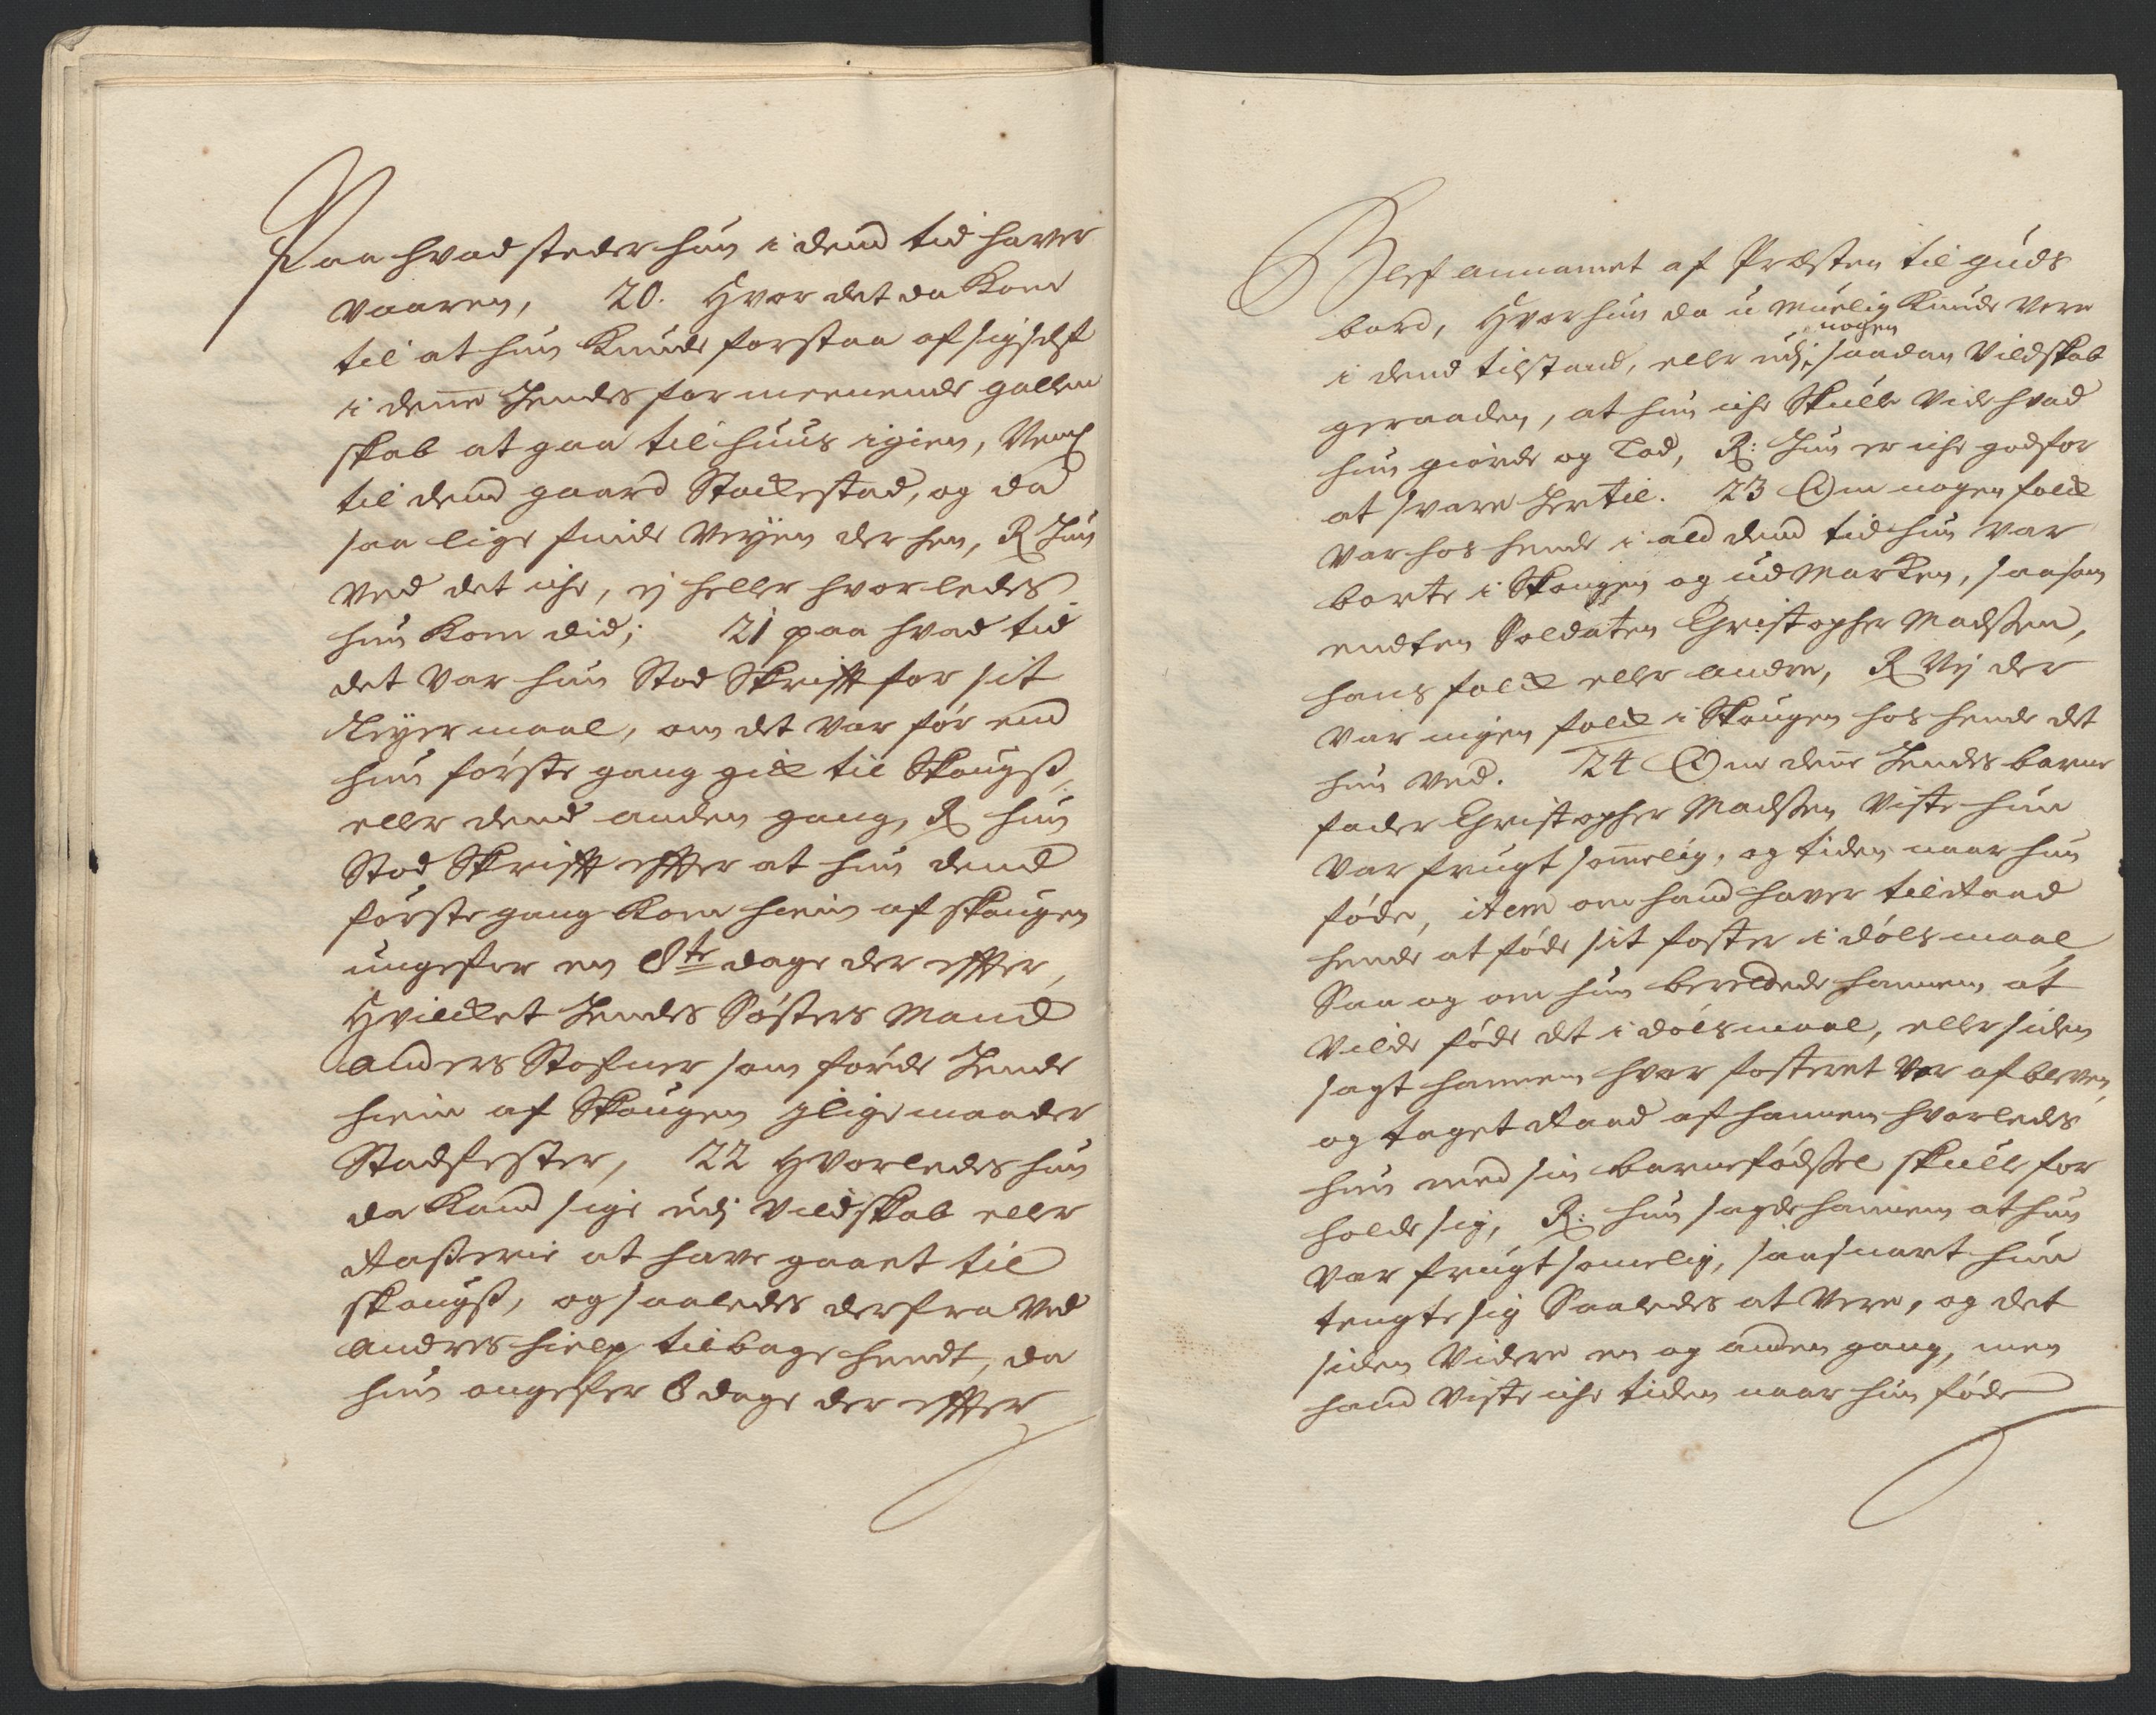 Paa hvad steder hun i dend tid haver
vaaren, 20. Hvor det da kom
til at hun kunde forstaa af sig self
i denne hendes formeenende gallen
skab at gaa til huus igien,
til dend gaard Stockestad, og da
saa lige finde veyen der hen, R Hun
ved det iche, ej heller hvorledes
hun kom did; 21 paa hvad tid
det var hun stod skrifft for sit
Leyermaal, om det var før end
hun første gang gick til skougs,
eller dend anden gang, R hun
stod skrifft effter at hun dend
første gang kom hiem af skougen
ungefer en 8te dage der effter,
Hvilcket hendes Søsters Mand
Anders Stofner som førde hende
hiem af Skougen j lige maader
Stadfester, 22 Hvorledes hun
da kand sige udj vildskab eller
Raserie at have gaaet til
skougs, og saaledes derfra ved
andres hielp tilbage hendt, da
hun ongefer 8 dage der effter
Blef annammet af Præsten til guds
bord, Hvor hun da u-muelig kunde vere
nogen
i dend tilstand, eller udj saadan vildskab
geraaden, at hun iche skulle vide hvad
hun giorde og Lod, R: Hun er iche god for
at svare hertil. 23 Om nogen folck
var hos hende i ald dend tid hun var
borte i skougen og udmarken, saasom
endten Soldaten Christopher Madssen,
hans folck eller andre, R Nej der
var ingen folck i skougen hos hende det
hun ved. 24 Om denne hendes barne
fader Christopher Madssen viste hun
var frugtsommelig, og tiden naar hun
føde, item om hand haver tilraad
hende at føde sit foster i dølsmaal
Saa og om hun berettede hannem at
vilde føde det i dølsmaal, eller siden
sagt hannem hvor fosteret var af bleven,
og taget Raad af hannem hvorledes
hun med sin barnefødssel skulle for
holde sig, R: hun sagde hannem at hun
var frugtsomelig, saasnart hun
tengte sig saaledes at vere, og det
siden videre en og anden gang, men
hand viste iche tiden naar hun føde